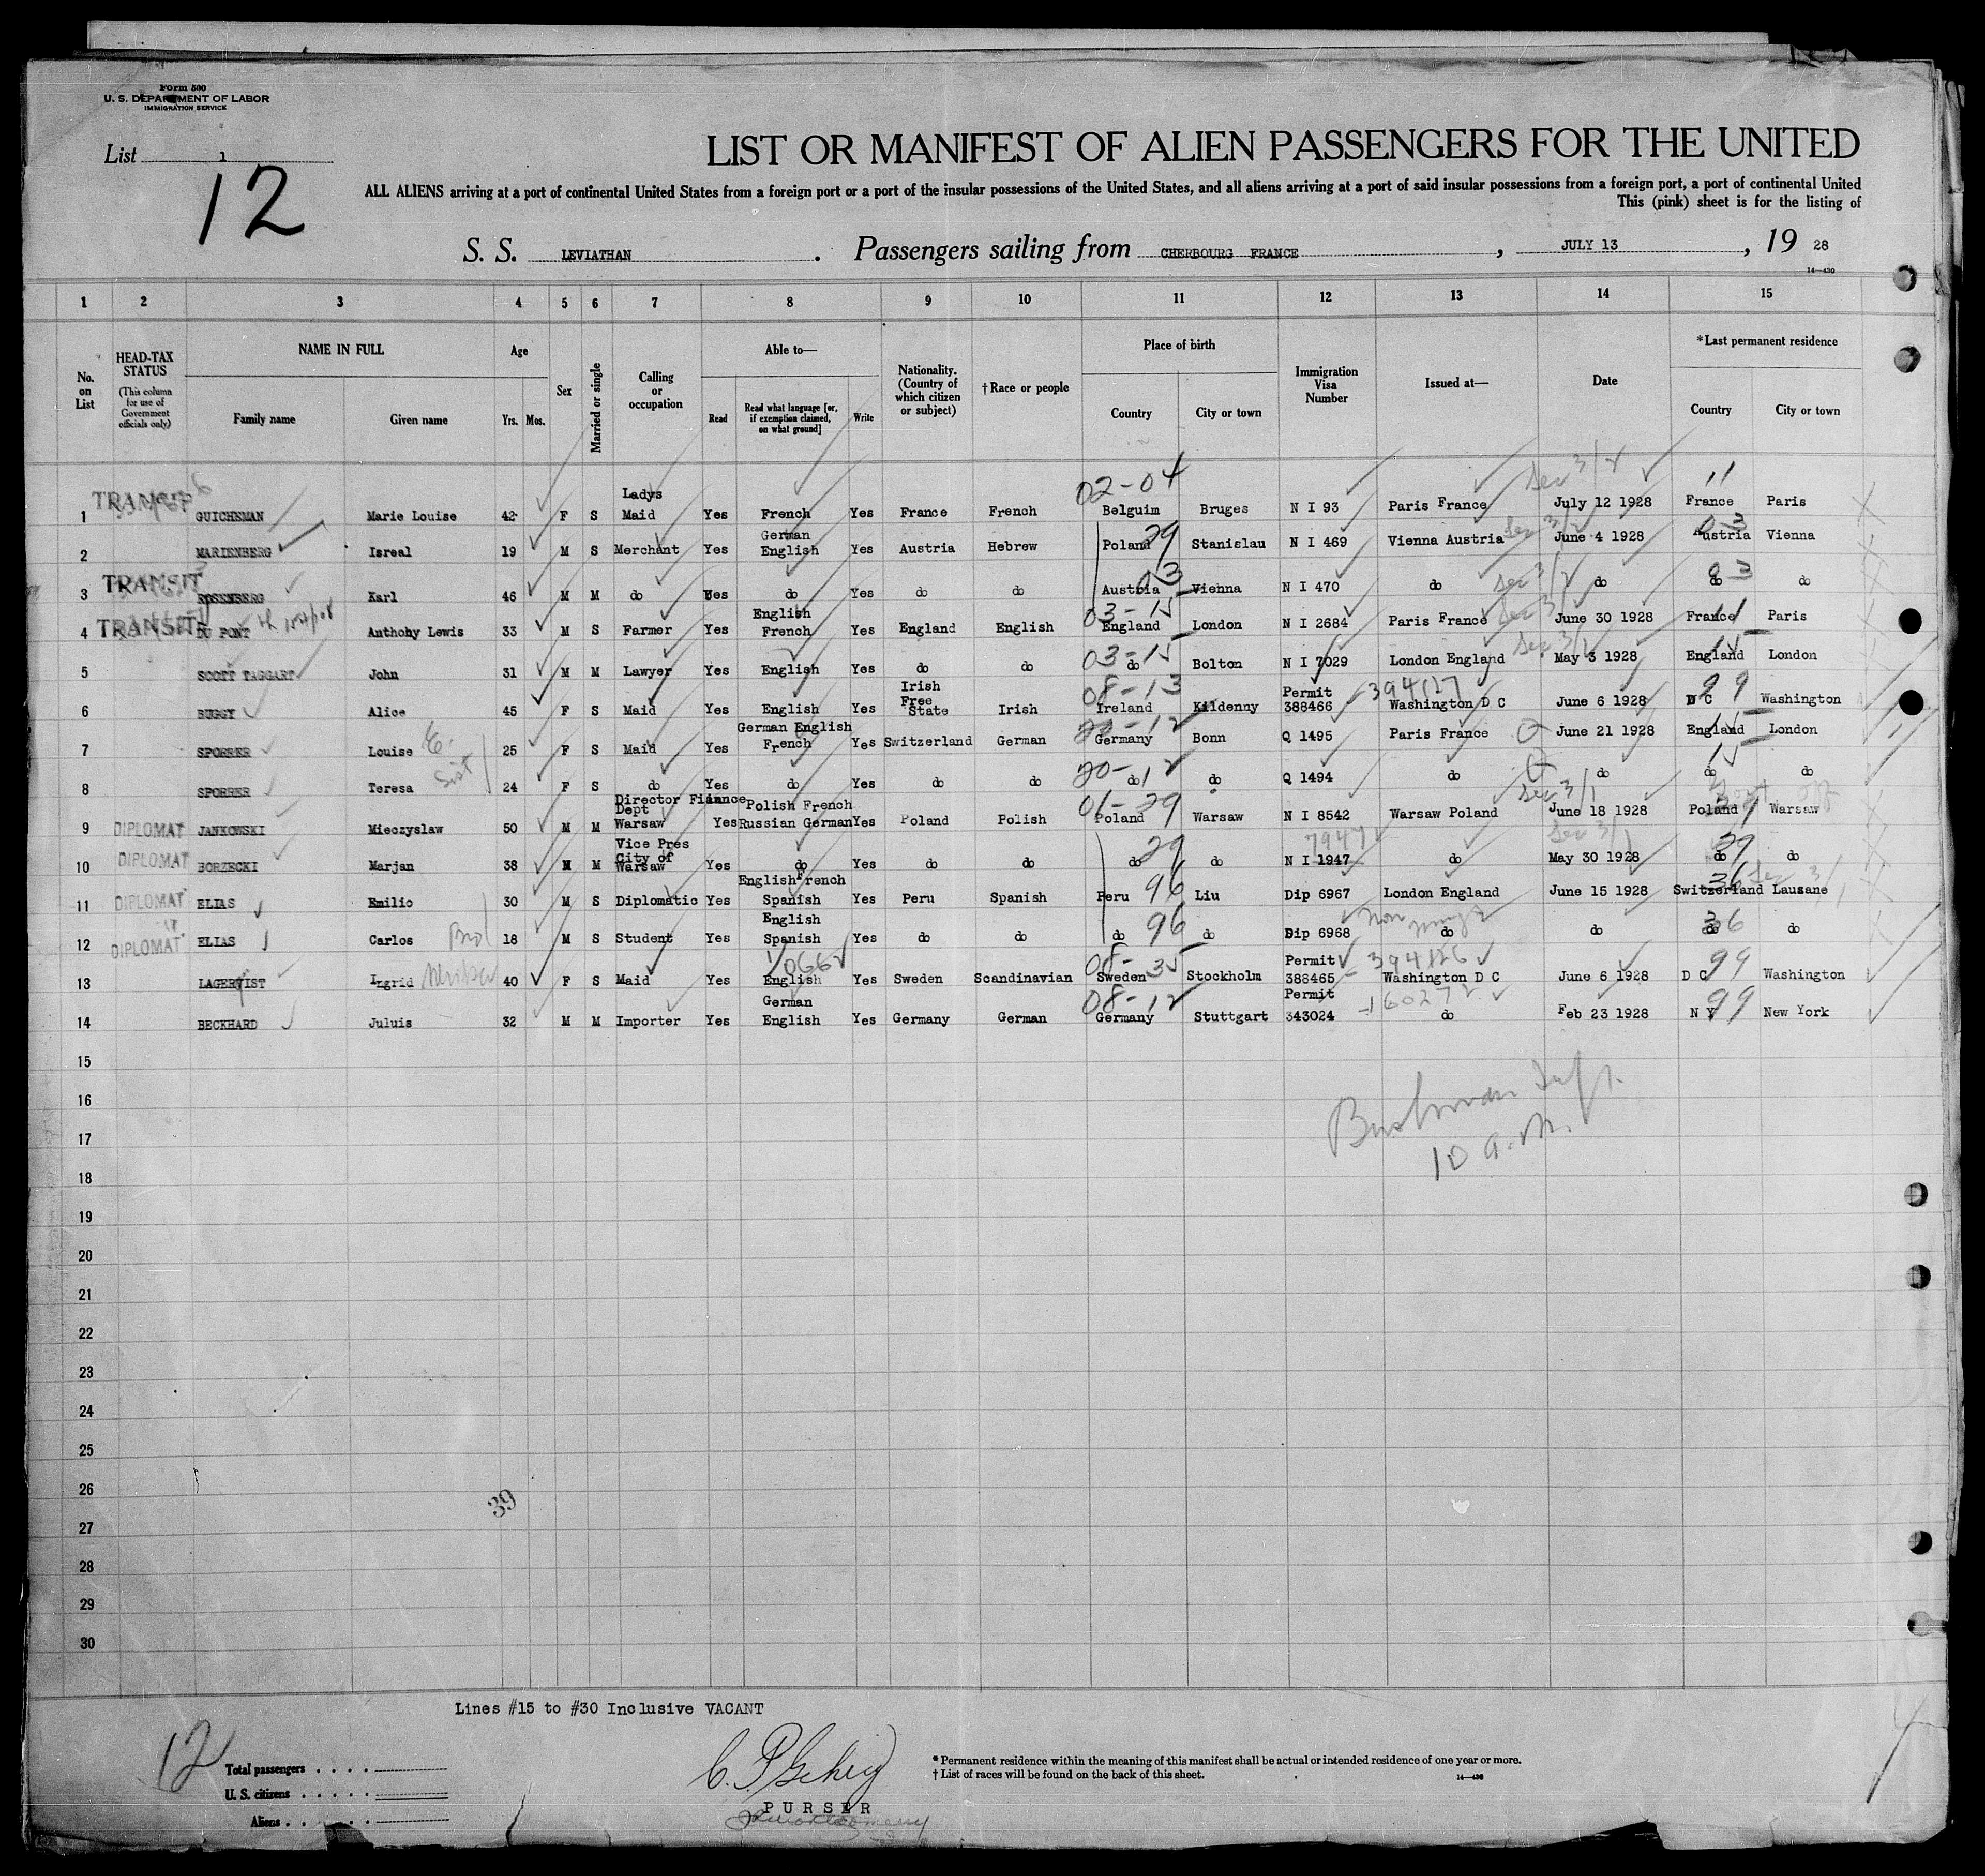 Form 500
U. S. DEPARTMENT OF LABOR
IMMIGRATION SERVICE
List 1
12
LIST OR MANIFEST OF ALIEN PASSENGERS FOR THE UNITED
ALL ALIENS arriving at a port of continental United States from a foreign port or a port of the insular possessions of the United States, and all aliens arriving at a port of said insular possessions from a foreign port, a port of continental United
This (pink) sheet is for the listing of
S. S. LEVIATHAN . Passengers sailing from CHERBOURG FRANCE , JULY 13 , 19 28
14—430
1 2 3 4 5 6 7 8 9 10 11 12 13 14 15
No. on List
HEAD-TAX STATUS (This column for use of Government officials only)
NAME IN FULL
Family name Given name
Age
Yrs. Mos.
Sex
Married or single
Calling or occupation
Able to—
Read
Read what language [or, if exemption claimed, on what ground]
Write
Nationality. (Country of which citizen or subject)
† Race or people
Place of birth
Country City or town
Immigration Visa Number
Issued at—
Date
* Last permanent residence
Country City or town
1 TRANSIT GUICHEMAN Marie Louise 42 F S Ladys Maid Yes French Yes France French 02-04 Belguim Bruges N I 93 Paris France Sec 3/2 July 12 1928 11 France Paris
2 MARIENBERG Isreal 19 M S Merchant Yes German English Yes Austria Hebrew Poland 29 Stanislau N I 469 Vienna Austria Sec 3/2 June 4 1928 03 Austria Vienna
3 TRANSIT ROSENBERG Karl 46 M M do Yes do Yes do do Austria 03 Vienna N I 470 do Sec 3/2 do 03 do do
4 TRANSIT DU PONT Anthony Lewis 33 M S Farmer Yes English French Yes England English 03-15 England London N I 2684 Paris France Sec 3/2 June 30 1928 France 11 Paris
5 SCOTT TAGGART John 31 M M Lawyer Yes English Yes do do 03-15 do Bolton N I 7029 London England Sec 3/2 May 3 1928 England 15 London
6 BUGGY Alice 45 F S Maid Yes English Yes Irish Free State Irish 08-13 Ireland Kildenny Permit 388466 - 394127 Washington D C June 6 1928 D C 99 Washington
7 SPORRER Louise 25 F S Maid Yes German English French Yes Switzerland German 20-12 Germany Bonn Q 1495 Paris France Q June 21 1928 England 15 London
8 SPORRER Teresa Sist 24 F S do Yes do Yes do do 20-12 do do Q 1494 do Q do 15 do do
9 DIPLOMAT JANKOWSKI Mieczyslaw 50 M M Director Finance Dept Warsaw Yes Polish French Russian German Yes Poland Polish 01-29 Poland Warsaw N I 8542 Warsaw Poland Sec 3/1 June 18 1928 Poland Warsaw
10 DIPLOMAT BORZECKI Marjan 38 M M Vice Pres City of Warsaw Yes do Yes do do 29 do do 7947 N I 1947 do Sec 3/1 May 30 1928 29 do do
11 DIPLOMAT ELIAS Emilio 30 M S Diplomatic Yes English French Spanish Yes Peru Spanish Peru 96 Liu Dip 6967 London England June 15 1928 36 Switzerland Lausane Sec 3/1
12 DIPLOMAT ELIAS Carlos Bro 18 M S Student Yes English Spanish Yes do do 96 do do Dip 6968 do do 36 do do
13 LAGERVIST Ingrid 40 F S Maid Yes English Yes Sweden Scandinavian 08-35 Sweden Stockholm Permit 388465 - 394126 Washington D C June 6 1928 D C 99 Washington
14 BECKHARD Juluis 32 M M Importer Yes German English Yes Germany German 08-12 Germany Stuttgart Permit 343024 - 160272 do Feb 23 1928 N Y 99 New York
15
16
17
10 a.m.
18
19
20
21
22
23
24
25
26
39
27
28
29
30
Lines #15 to #30 Inclusive VACANT
12
Total passengers
U. S. citizens
Aliens
C. P. Gehrig
PURSER
* Permanent residence within the meaning of this manifest shall be actual or intended residence of one year or more.
† List of races will be found on the back of this sheet.
14—430